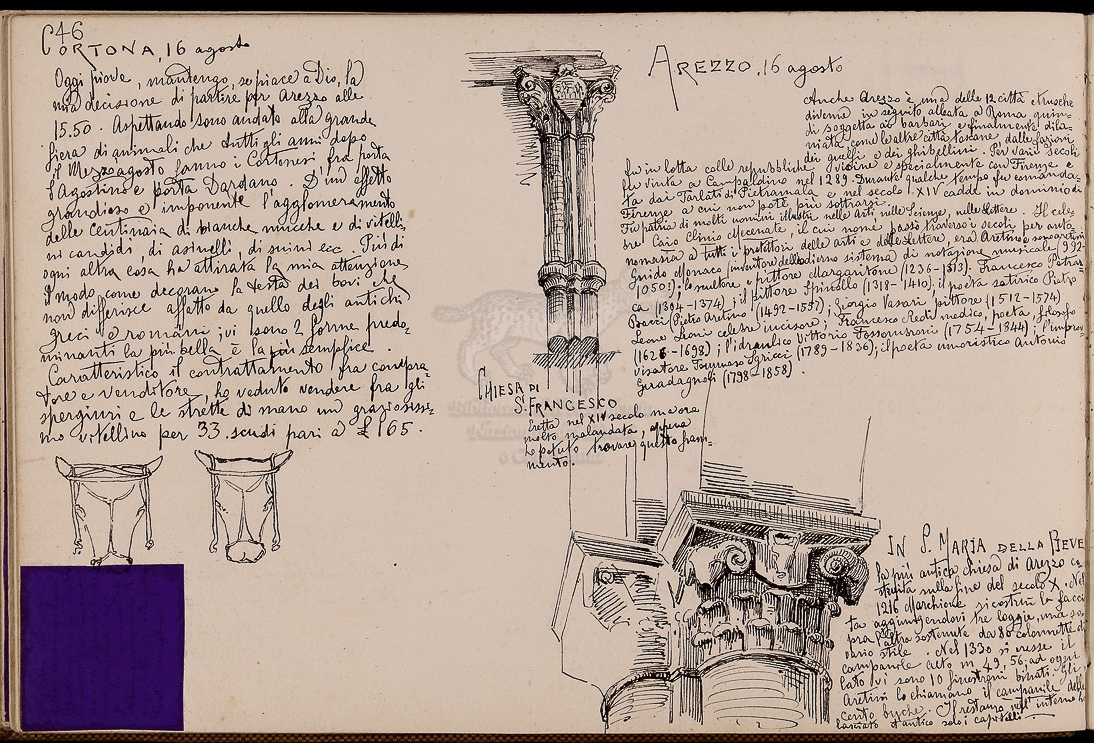 46
CORTONA, 16 agosto
Oggi piove, mantengo, se piace a Dio, la
mia decisione di partire per Arezzo alle
15.50. Aspettando sono andato alla grande
fiera di animali che tutti gli anni dopo
il Mezzagosto fanno i Cortonesi fra porta
S. Agostino e porta Dardano. D'un effetto
grandioso e imponente l'agglomeramento
delle centinaia di bianche mucche e di vitelli
ni candidi, di asinelli, di suini ecc. Più di
ogni altra cosa ha attirata la mia attenzione
il modo come decorano la testa dei bovi che
non differisce affatto da quello degli antichi
greci e romani; vi sono 2 forme predo-
minanti la più bella è la più semplice.
Caratteristico il contrattamento fra compra-
tore e venditore, ho veduto vendere fra gli
spergiuri e le strette di mano un graziosissi-
mo vitellino per 33 scudi pari a £ 165.
AREZZO, 16 agosto
Anche Arezzo è una delle 12 città etrusche
divenne in seguito alleata a Roma quin-
di soggetta ai barbari e finalmente dila-
niata come le altre città toscane dalle fazioni
dei guelfi e dei ghibellini. Per varii secoli
fu in lotta colle repubbliche vicine e specialmente con Firenze e
fu vinta a Campaldino nel 1289. Durante qualche tempo fu comanda-
ta dai Tarlati di Pietramala e nel secolo XIV cadde in dominio di
Firenze a cui non potè più sottrarsi.
Fu patria di molti uomini illustri nelle arti nelle scienze, nelle lettere. Il cele-
bre Caio Clinio Mecenate, il cui nome passò traverso i secoli per anto-
nomasia a tutti i protettori delle arti e delle lettere, era Aretino e
Guido Monaco inventore dell'odierno sistema di notazione musicale (992-
1050?); lo scultore e pittore Margaritone (1236-1313). Francesco Petrar-
ca (1304-1374); il pittore Spinello (1318-1410); il poeta satirico Pietro
Bacci (Pietro Aretino (1492-1557); Giorgio Vasari pittore (1512-1574)
Leone Leoni celebre incisore; Francesco Redi medico, poeta, filosofo
(1626-1698); l'idraulico Vittorio Fossombroni (1754-1844); l'improv-
visatore Tommaso Sgricci (1789-1836); il poeta umoristico Antonio
Guadagnoli (1798-1858).
CHIESA DI
S. FRANCESCO
Eretta nel XIV secolo ma ora
molto malandata, appena
ho potuto trovare questo fram-
mento.
IN S. MARIA DELLA PIEVE
la più antica chiesa di Arezzo co
struita sulla fine del secolo X. Nel
1216 Marchione ricostruì la faccia
ta aggiungendovi tre loggie, una so
pra l'altra sostenute da 80 colonnette di
vario stile. Nel 1330 si eresse il
campanile alto m. 49,56; ad ogni
lato vi sono 10 finestroni binati. Gli
Aretini lo chiamano il campanile delle
cento buche. Il restauro nell'interno ha
lasciato d'antico solo i capitelli.